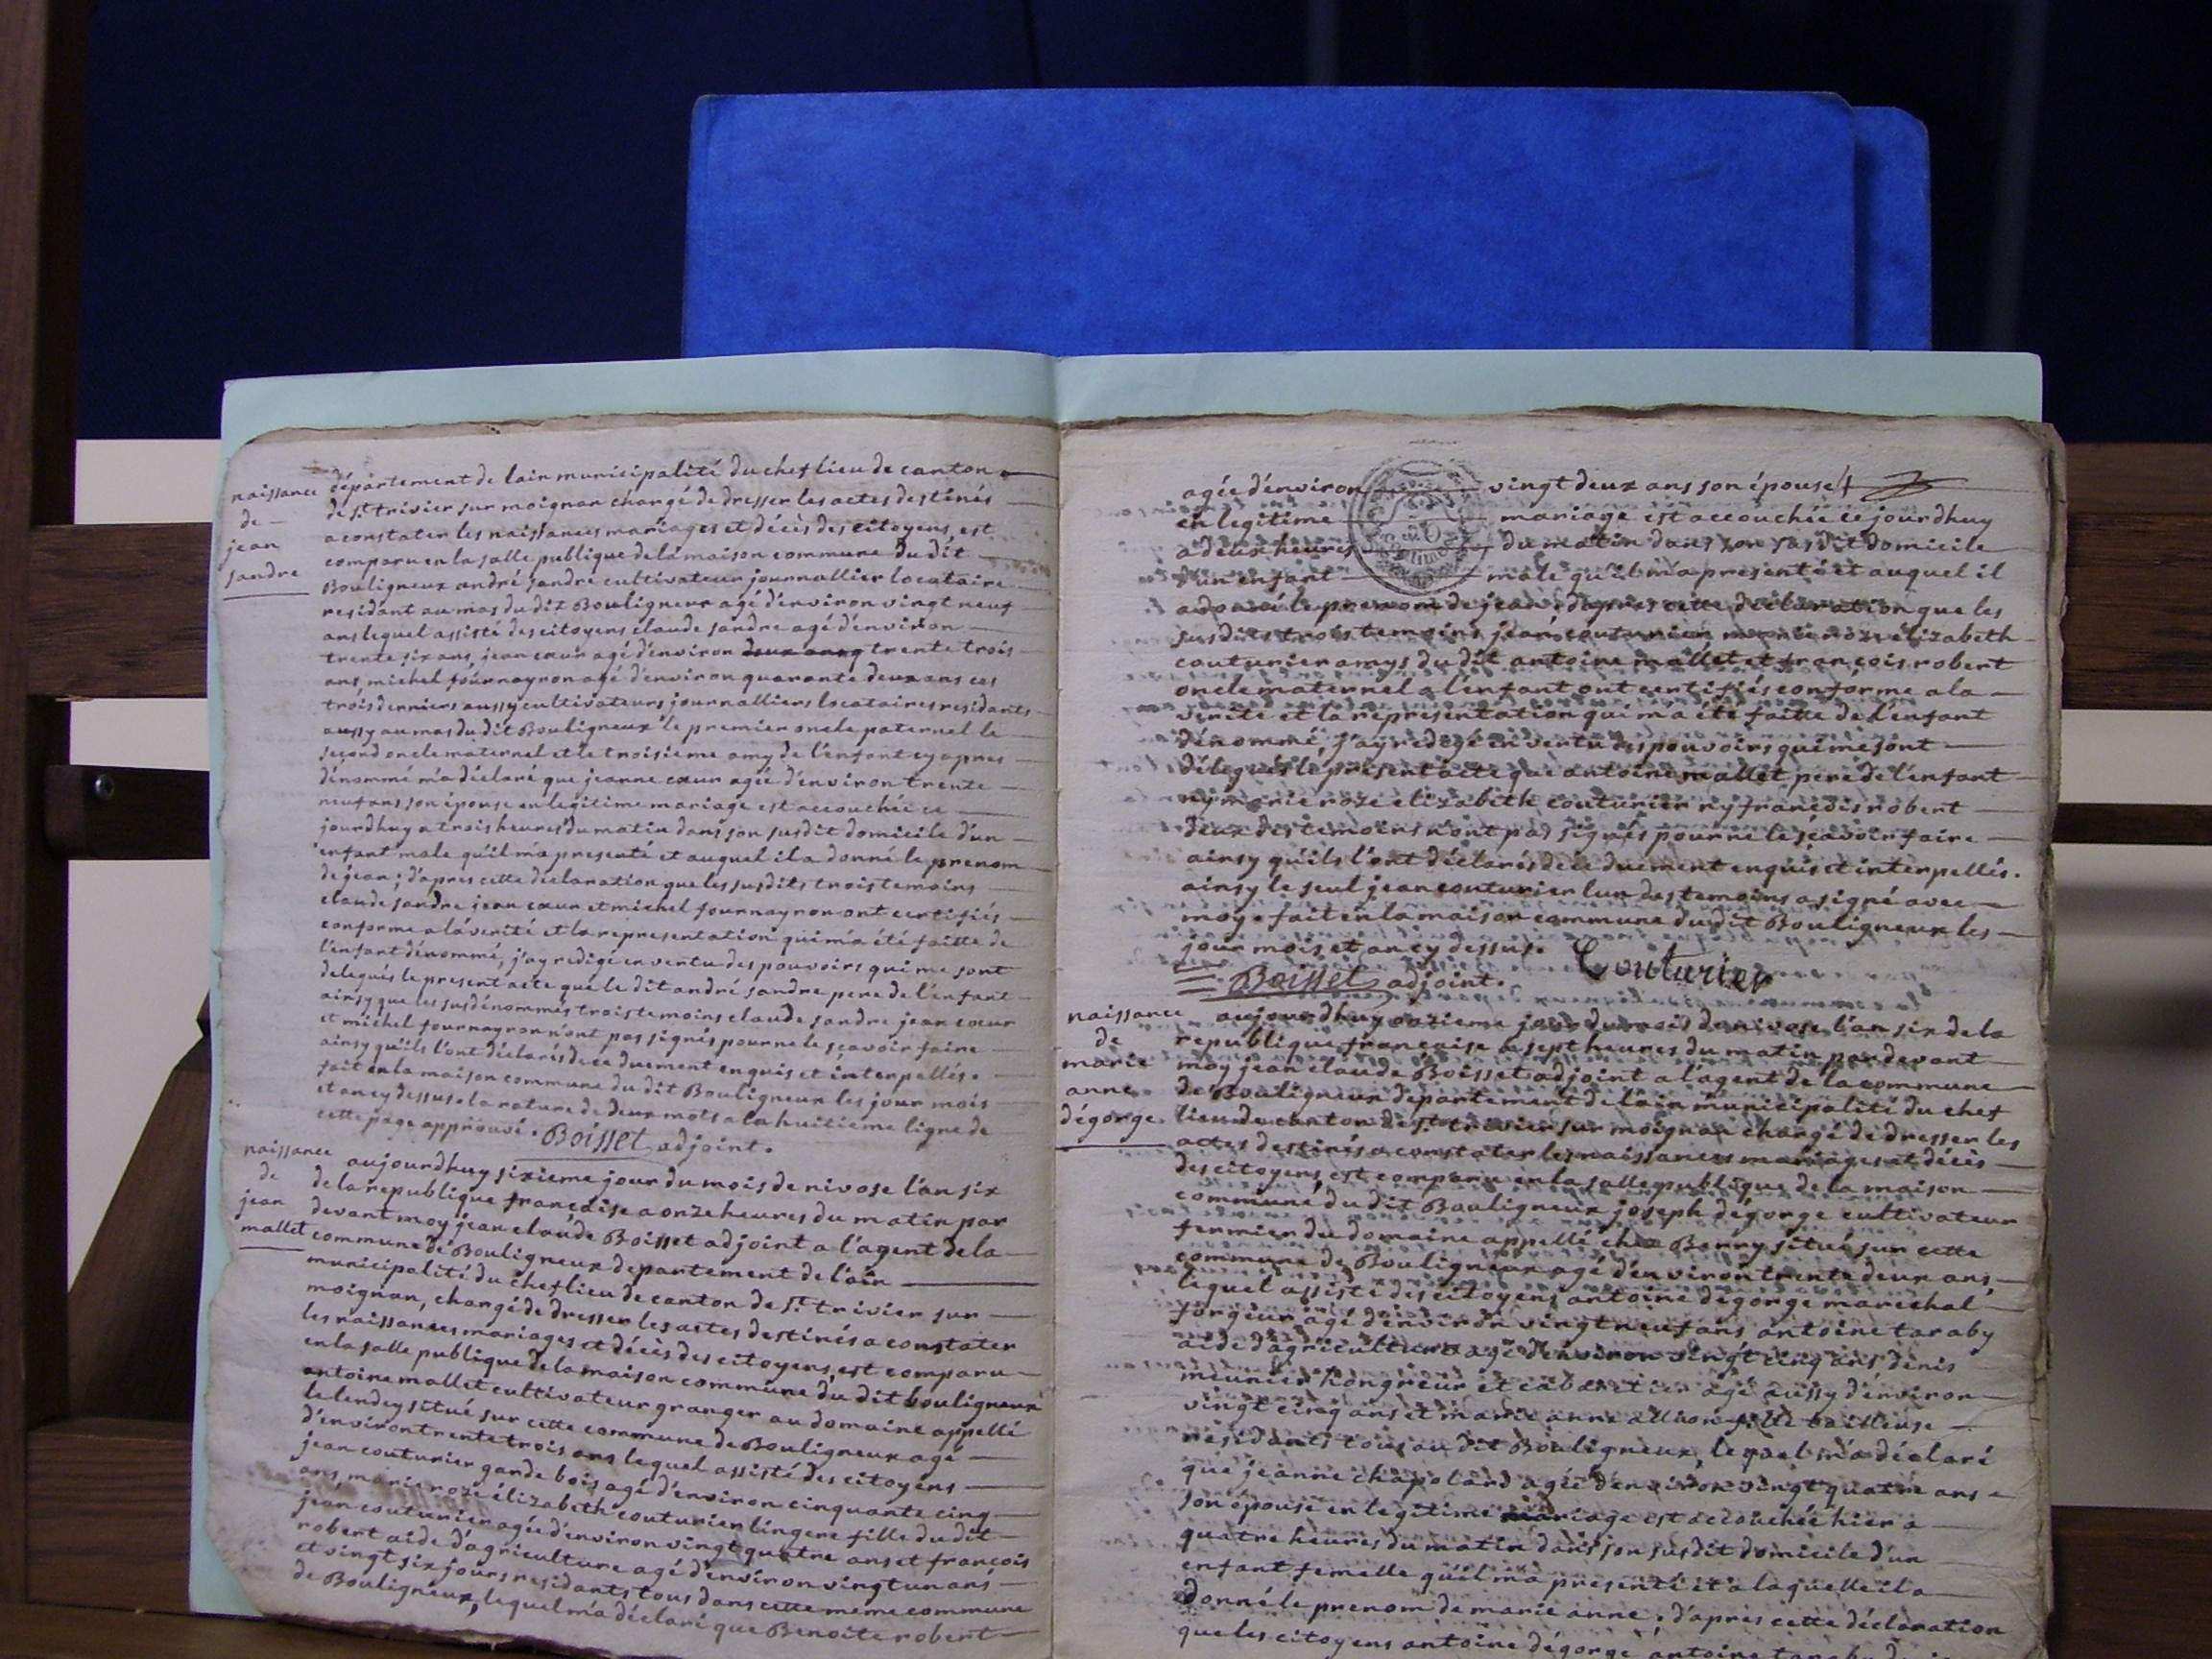 naissance
de
jean
sandre
département de lain municipalité du chef lieu de canton
de St. trivier sur moignan chargé de dresser les actes destinés
a constater les naissances mariages et décès des citoyens, est
comparu en la salle publique de la maison commune du dit
Bouligneux andré sandre cultivateur journallier locataire
residant au mas du dit Bouligneux agé d'environ vingt neuf
ans lequel assisté des citoyens claude sandre agé d'environ
trente six ans, jean cœur agé d'environ trente trois
ans, michel fournayron agé d'environ quarante deux ans ces
trois derniers aussy cultivateurs journalliers locataires residants
aussy au mas du dit Bouligneux le premier oncle paternel le
second oncle maternel et le troisieme amy de l'enfant cy apres
dénommé m'a déclaré que jeanne cœur agée d'environ trente
neuf ans son épouse en legitime mariage est accouchée ce
jourdhuy a trois heures du matin dans son susdit domicile d'un
enfant male qu'il m'a presenté et auquel il a donné le prenom
de jean; d'apres cette declaration que les susdits trois temoins
claude sandre jean cœur et michel fournayron ont certifiés
conforme a la verité et la representation qui m'a été faitte de
l'enfant dénommé, j'ay redigé en vertu des pouvoirs qui me sont
delegués le present acte que le dit andré sandre pere de l'enfant
ainsy que les susdénommés trois temoins claude sandre jean cœur
et michel fournayron n'ont pas signés pour ne le sçavoir faire
ainsy qu'ils l'ont déclarés de ce duement enquis et interpellés.
fait en la maison commune du dit Bouligneux les jour mois
et an cy dessus la rature de deux mots a la huitieme ligne de
cette page approuvé. Boisset adjoint.
naissance
de
jean
mallet
aujourdhuy sixieme jour du mois de nivose l'an six
de la republique française a onze heures du matin par
devant moy jean claude Boisset adjoint a l'agent de la
commune de Bouligneux departement de l'ain
municipalité du chef lieu de canton de St. trivier sur
moignan, chargé de dresser les actes destinés a constater
les naissances mariages et décès des citoyens, est comparu
en la salle publique de la maison commune du dit bouligneux
antoine mallet cultivateur granger au domaine appellé
le lendey situé sur cette commune de Bouligneux agé
d'environ trente trois ans lequel assisté des citoyens
jean couturier garde bois agé d'environ cinquante cinq
ans, marie roze élizabeth couturier lingere fille du dit
jean couturier agée d'environ vingt quatre ans et françois
robert aide d'agriculture agé d'environ vingt un ans
et vingt six jours residants tous dans cette meme commune
de Bouligneux, lequel m'a déclaré que Benoite robert
agée d'environ vingt deux ans son épouse
en legitime mariage est accouchée ce jourdhuy
a deux heures du matin dans son susdit domicile
d'un enfant male qu'il m'a presenté et auquel il
a donné le prenom de jean; d'apres cette déclaration que les
susdits trois temoins jean couturier marie roze élizabeth
couturier amys du dit antoine mallet et françois robert
oncle maternel a l'enfant ont certifiés conforme a la
verité et la representation qui m'a été faitte de l'enfant
dénommé, j'ay redigé en vertu des pouvoirs qui me sont
délegués le présent acte que antoine mallet pere de l'enfant
ny marie roze elizabeth couturier ny françois robert
deux des temoins n'ont pas signés pour ne le sçavoir faire
ainsy qu'ils l'ont déclarés de ce duement enquis et interpellés.
ainsy le seul jean couturier l'un des temoins a signé avec
moy. fait en la maison commune du dit Bouligneux les
jour mois et an cy dessus. Couturier
Boisset adjoint.
naissance
de
marie
anne
dégorge
aujourdhuy onzieme jour du mois de nivose l'an six de la
republique française a sept heures du matin par devant
moy jean claude Boisset adjoint a l'agent de la commune
de Bouligneux departement de lain municipalité du chef
lieu de canton de St. trivier sur moignan chargé de dresser les
actes destinés a constater les naissances mariages et décès
des citoyens, est comparu en la salle publique de la maison
commune du dit Bouligneux joseph dégorge cultivateur
fermier du domaine appellé chez Berry situé sur cette
commune de Bouligneux agé d'environ trente deux ans
lequel assisté des citoyens antoine dégorge marechal
forgeur agé d'environ vingt neuf ans antoine taraby
aide d'agriculture agé d'environ vingt cinq ans denis
meunier hongreur et cabaretier agé aussy d'environ
vingt cinq ans et marie anne fille
residants tous au dit Bouligneux, lequel m'a déclaré
que jeanne chapolard agée d'environ vingt quatre ans
son épouse en legitime mariage est accouchée hier a
quatre heures du matin dans son susdit domicile d'un
enfant femelle qu'il m'a presenté et a laquelle il a
donné le prenom de marie anne; d'apres cette déclaration
que les citoyens antoine dégorge antoine taraby